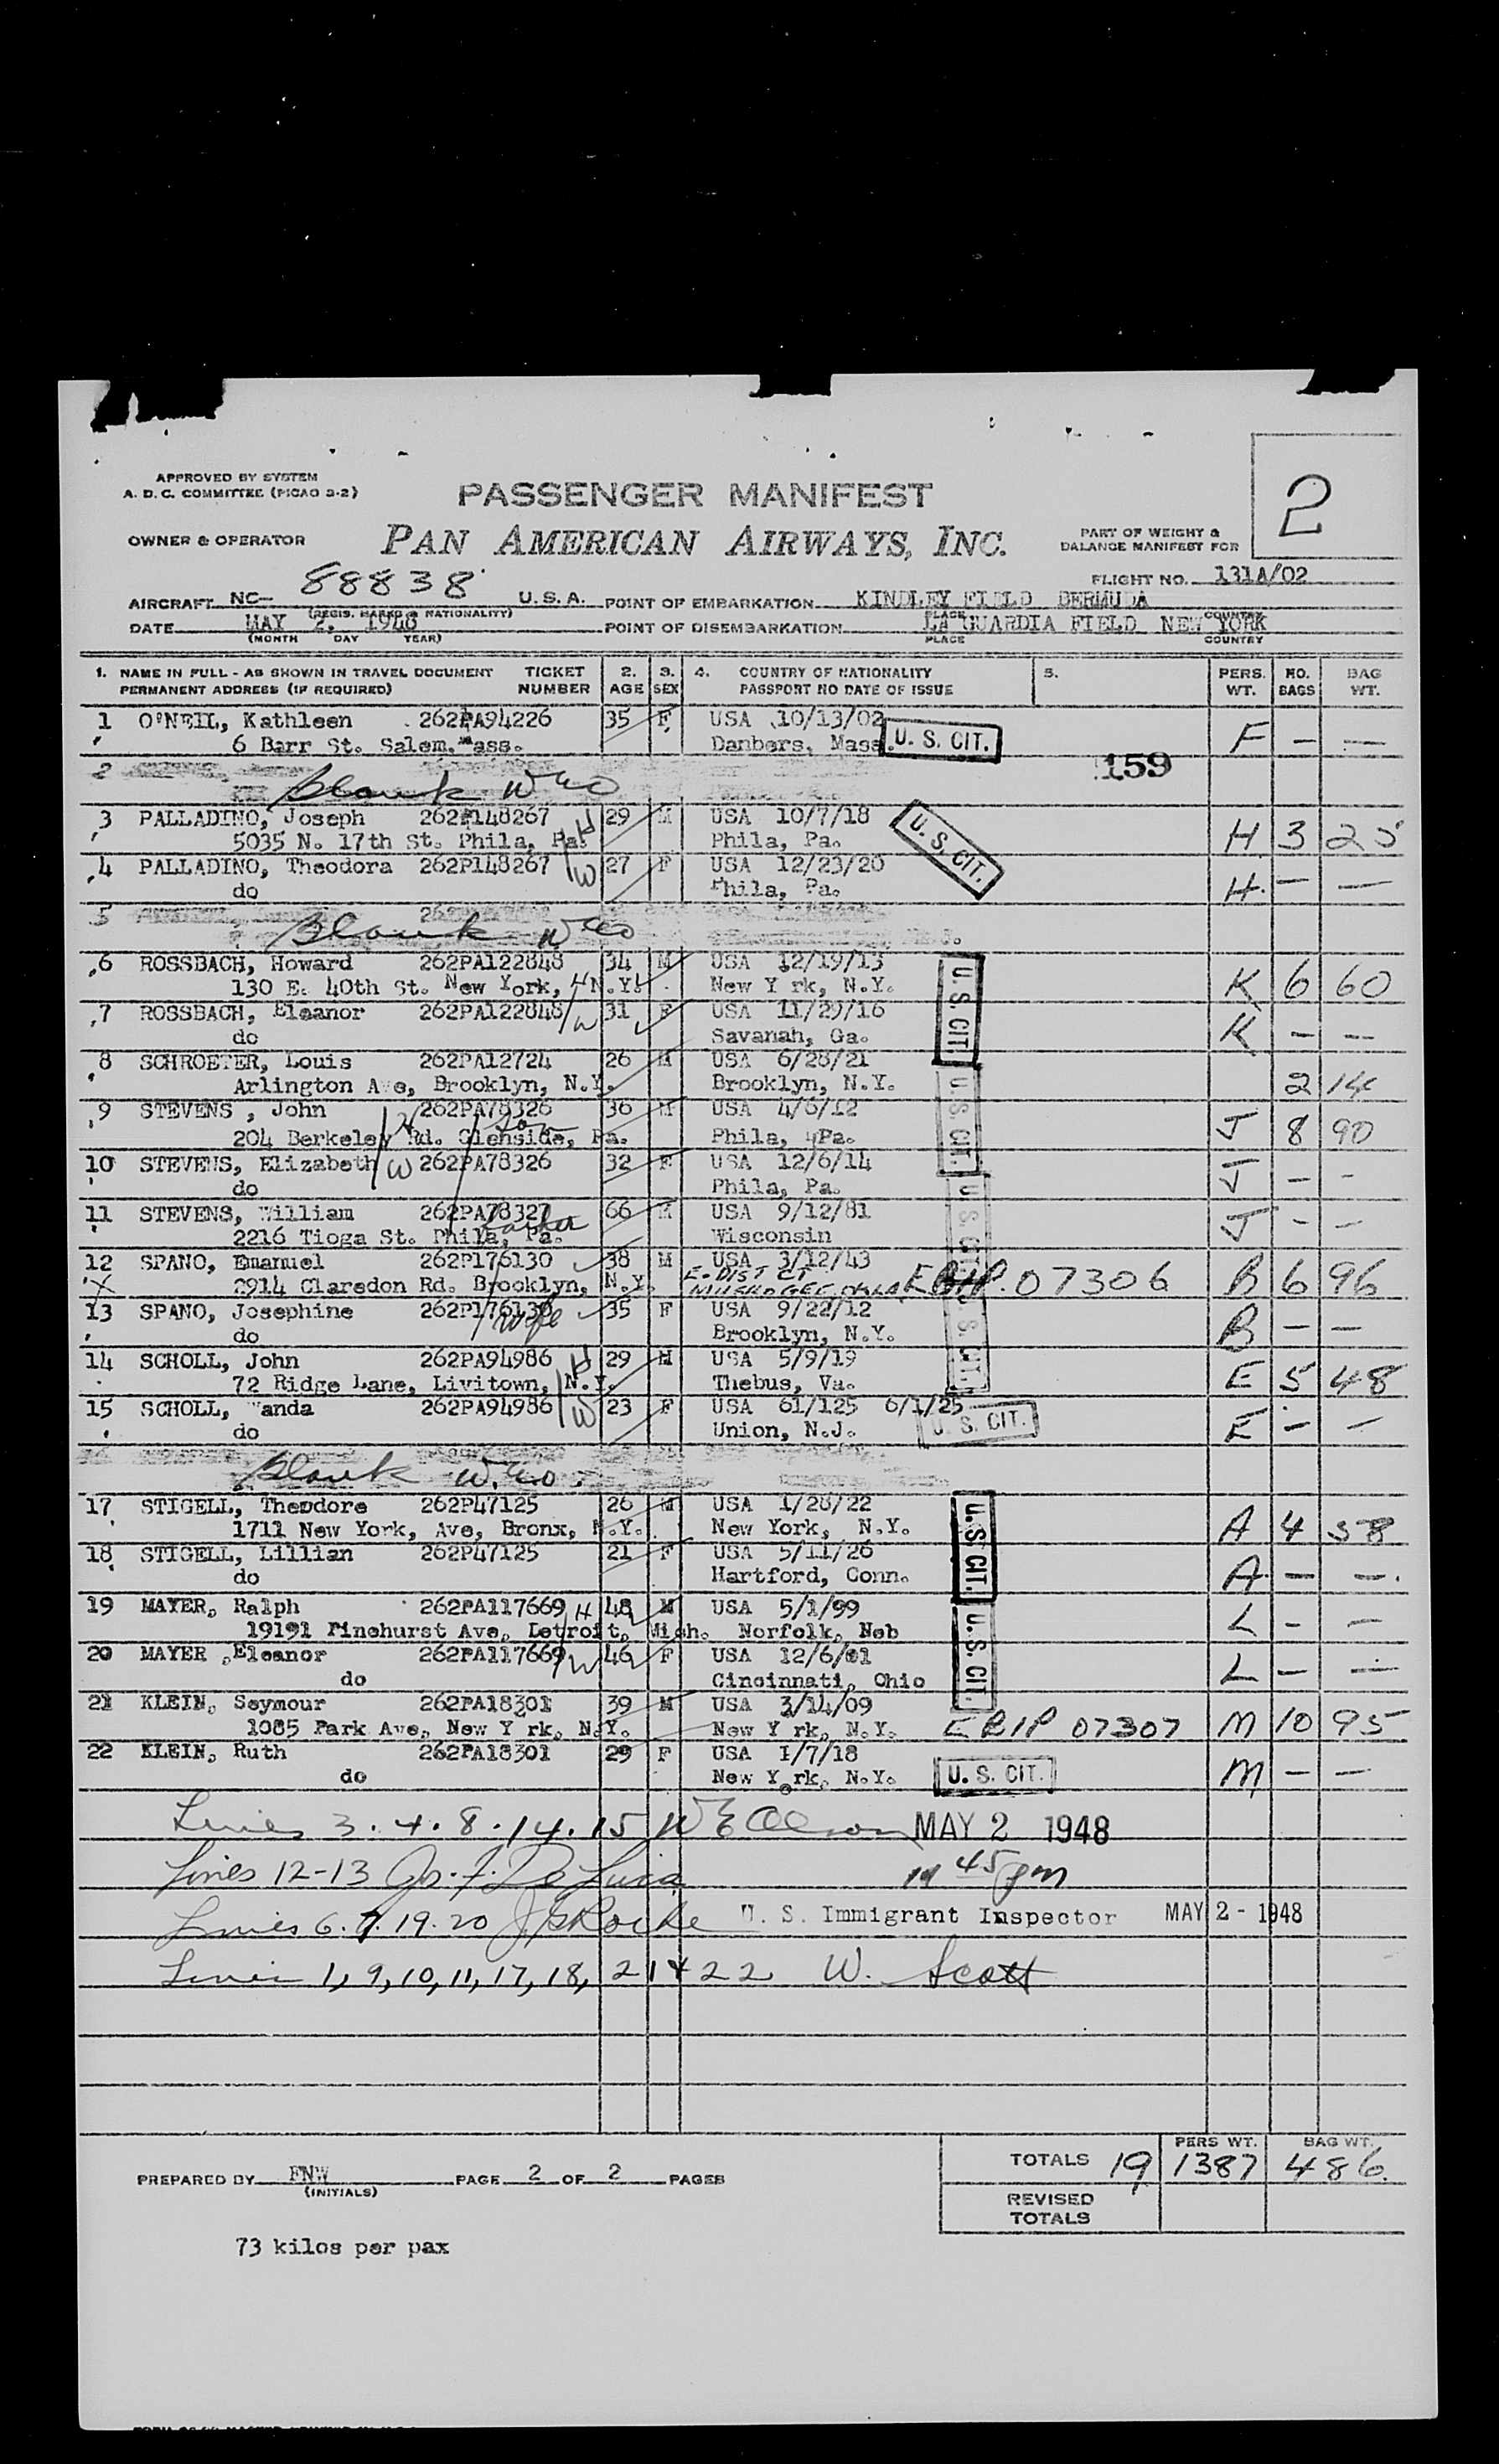 APPROVED BY SYSTEM
A. D. C. COMMITTEE (PICAO 3-2)
PASSENGER MANIFEST
2
OWNER & OPERATOR
PAN AMERICAN AIRWAYS, INC.
PART OF WEIGHT &
BALANCE MANIFEST FOR
FLIGHT NO. 131A/02
AIRCRAFT NC- 88838 U.S.A. POINT OF EMBARKATION KINDLEY FIELD BERMUDA
(REGIS. MARKS & NATIONALITY) PLACE COUNTRY
DATE MAY 2, 1948 POINT OF DISEMBARKATION LA GUARDIA FIELD NEW YORK
(MONTH DAY YEAR) PLACE COUNTRY
1. NAME IN FULL - AS SHOWN IN TRAVEL DOCUMENT TICKET 2. 3. 4. COUNTRY OF NATIONALITY 5. PERS. NO. BAG
PERMANENT ADDRESS (IF REQUIRED) NUMBER AGE SEX PASSPORT NO DATE OF ISSUE WT. BAGS WT.
1 O'NEIL, Kathleen 262PA94226 35 F USA 10/13/02
6 Barr St. Salem, Mass. Danbers, Mass. U. S. CIT. F — —
2 159
Blank WEO
3 PALLADINO, Joseph 262P148267 29 M USA 10/7/18
5035 N. 17th St. Phila, Pa. H Phila, Pa. U. S. CIT. H 3 25
4 PALLADINO, Theodora 262P148267 W 27 F USA 12/23/20
do Phila, Pa. H. — —
5
Blank WEO
6 ROSSBACH, Howard 262PA122848 34 M USA 12/19/13
130 E. 40th St. New York, N.Y. H New Y rk, N.Y. U. S. CIT K 6 60
7 ROSSBACH, Eleanor 262PA122848 W 31 F USA 11/29/16
do Savanah, Ga. K — —
8 SCHROETER, Louis 262PA12724 26 M USA 6/28/21
Arlington Ave, Brooklyn, N.Y. Brooklyn, N.Y. U. S. CIT. 2 14
9 STEVENS , John 262PA78326 36 M USA 4/6/12
204 Berkeley Rd. Glenside, Pa. H Son Phila, Pa. J 8 90
10 STEVENS, Elizabeth W 262PA78326 32 F USA 12/6/14
do Phila, Pa. J — -
11 STEVENS, William 262PA78327 66 M USA 9/12/81
2216 Tioga St. Phila, Pa. Father Wisconsin U. S. CIT. J - -
12 SPANO, Emanuel 262P176130 38 M USA 3/12/43
X 2914 Claredon Rd. Brooklyn, N.Y. E. DIST CT MUSKOGEE OKLA ERIP. 07306 B 6 96
13 SPANO, Josephine 262P176130 wife 35 F USA 9/22/12
do Brooklyn, N.Y. U. S. CIT. B — —
14 SCHOLL, John 262PA94986 H 29 M USA 5/9/19
72 Ridge Lane, Livitown, N.Y. Thebus, Va. E 5 48
15 SCHOLL, Wanda 262PA94986 W 23 F USA 61/125 6/1/25
do Union, N.J. U. S. CIT. E - —
Blank W.EO.
17 STIGELL, Theodore 262P47125 26 M USA 1/28/22
1711 New York, Ave, Bronx, N.Y. New York, N.Y. U. S. CIT. A 4 58
18 STIGELL, Lillian 262P47125 21 F USA 5/11/26
do Hartford, Conn. A — —
19 MAYER, Ralph 262PA117669 H 48 M USA 5/1/99
19191 Pinehurst Ave, Detroit, Mich. Norfolk, Neb U. S. CIT. L - -
20 MAYER ,Eleanor 262PA117669 W 46 F USA 12/6/01
do Cincinnati, Ohio L — —
21 KLEIN, Seymour 262PA18301 39 M USA 3/14/09
1085 Park Ave, New Y rk, N.Y. New Y rk, N.Y. ERIP 07307 M 10 95
22 KLEIN, Ruth 262PA18301 29 F USA 1/7/18
do New York, N.Y. U. S. CIT. M — —
Lines 3. 4. 8. 14. 15 W E Olson MAY 2 1948
Lines 12-13 Jos. F. De Luca 45 pm
Lines 6. 7. 19. 20 J Roche U. S. Immigrant Inspector MAY 2 - 1948
Lines 1, 9, 10, 11, 17, 18, 21 & 22 W. Scott
TOTALS 19 PERS WT. 1387 BAG WT. 486
PREPARED BY FNW PAGE 2 OF 2 PAGES
(INITIALS)
REVISED
TOTALS
73 kilos per pax